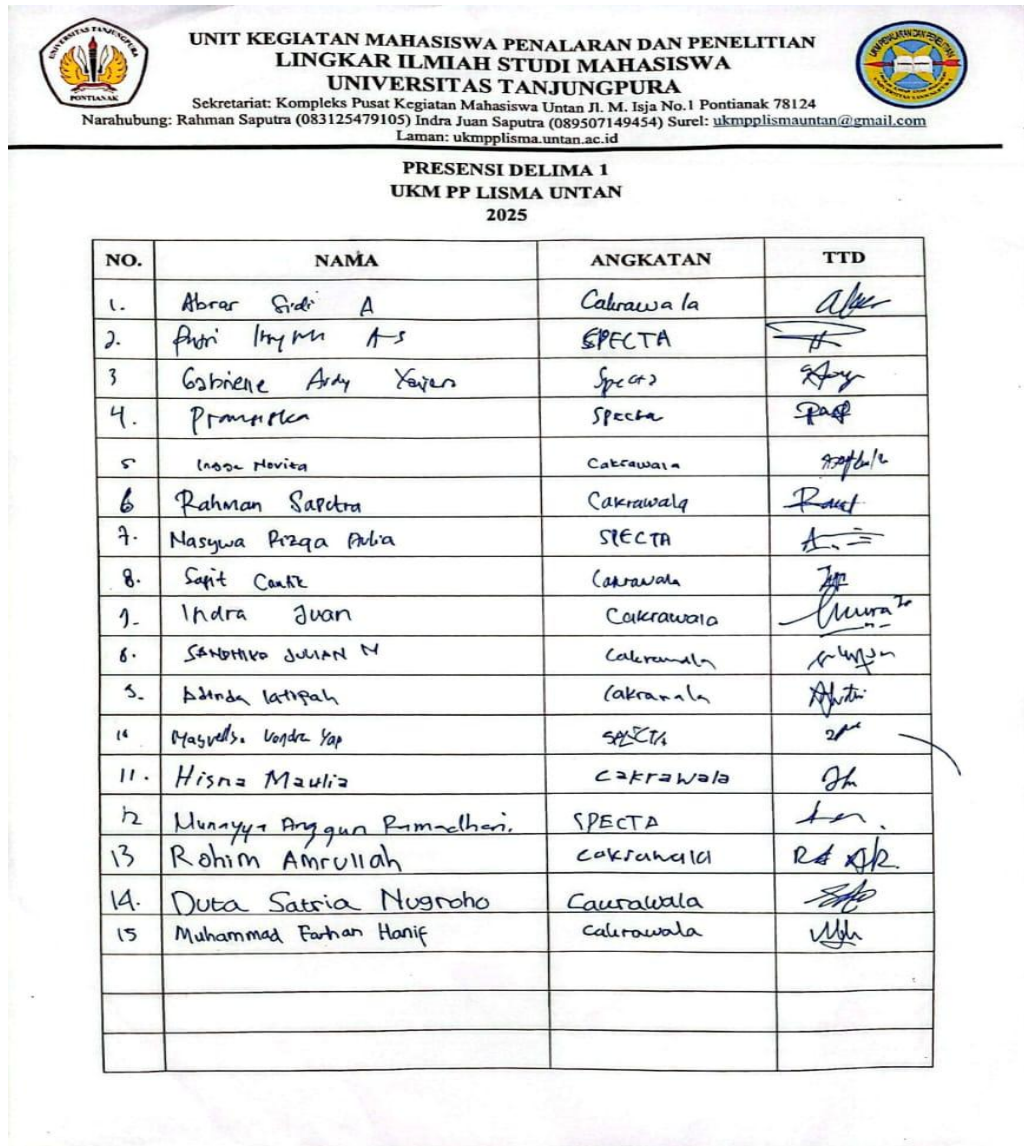 UNIVERSITAS TANJUNGPURA
PONTIANAK
UNIT KEGIATAN MAHASISWA PENALARAN DAN PENELITIAN
LINGKAR ILMIAH STUDI MAHASISWA
UNIVERSITAS TANJUNGPURA
Sekretariat: Kompleks Pusat Kegiatan Mahasiswa Untan Jl. M. Isja No.1 Pontianak 78124
Narahubung: Rahman Saputra (083125479105) Indra Juan Saputra (089507149454) Surel: ukmpplismauntan@gmail.com
Laman: ukmpplisma.untan.ac.id
PRESENSI DELIMA 1
UKM PP LISMA UNTAN
2025
NO. NAMA ANGKATAN TTD
1. Abrar Sidi A Cakrawala
2. Putri A-S SPECTA
3 Gabriene Ardy Specta
4. Specta
5 Novita Cakrawala
6 Rahman Saputra Cakrawala
7. Nasywa Rizqa Aulia SPECTA
8. Sapit Cantik Cakrawala
9. Indra Juan Cakrawala
8. SANDHIKO JULIAN N Cakrawala
9. Adinda latipah Cakrawala
10 Vondra Yap SPECTA
11. Hisna Maulia Cakrawala
12 Munayya Anggun Ramadhani. SPECTA
13 Rohim Amrullah Cakrawala
14. Duta Satria Nugroho Caurawala
15 Muhammad Farhan Hanif Cakrawala